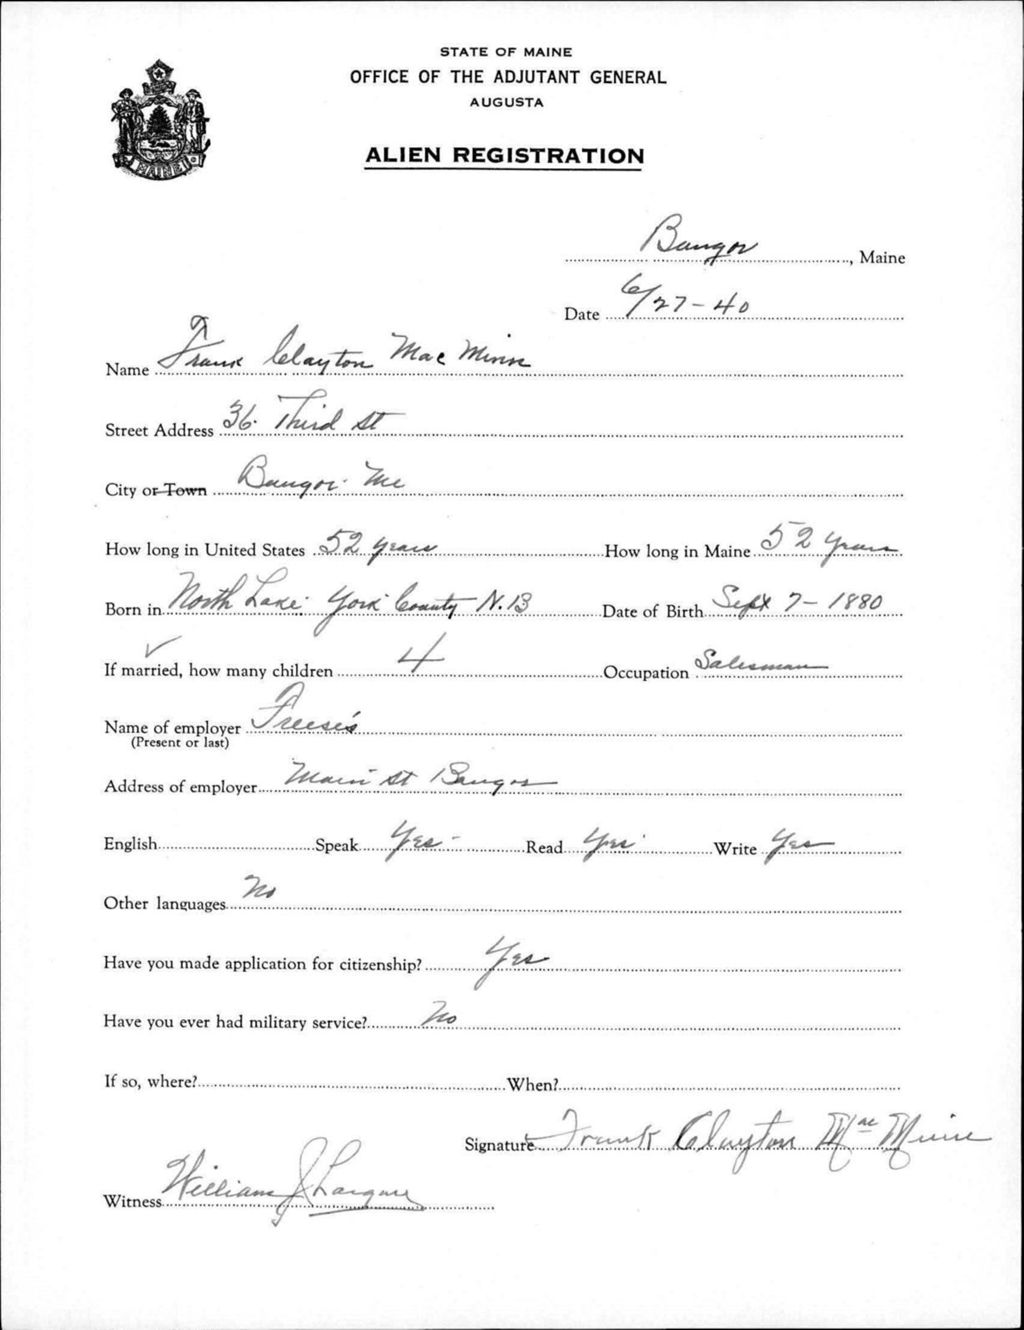 STATE OF MAINE
OFFICE OF THE ADJUTANT GENERAL
AUGUSTA
ALIEN REGISTRATION
MAINE
Bangor, Maine
Date 6/27-40
Name Frank Clayton Mac Minn
Street Address 36 Third St
City or Town Bangor Me
How long in United States 52 years How long in Maine 52 years
Born in North Lake York County N.B Date of Birth Sept 7-1880
If married, how many children 4 Occupation Salesman
Name of employer Freese's
(Present or last)
Address of employer Main St Bangor
English Speak Yes - Read Yes Write Yes
Other languages No
Have you made application for citizenship? Yes
Have you ever had military service? No
If so, where? When?
Signature Frank Clayton Mac Minn
Witness William J